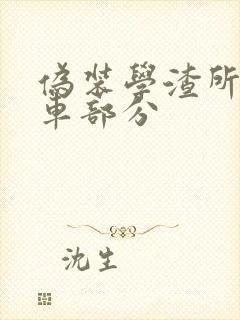 偽裝學渣所
車部分
沈生